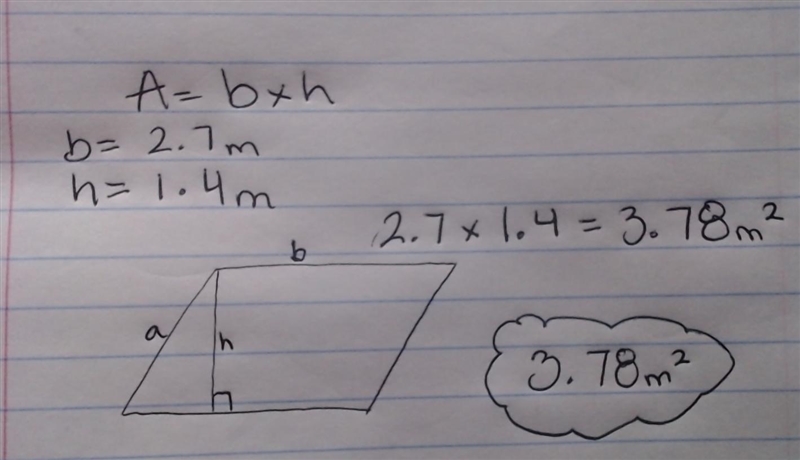 A = b x h
b = 2.7 m
h = 1.4 m
2.7 x 1.4 = 3.78 m²
b
a
h
3.78 m²